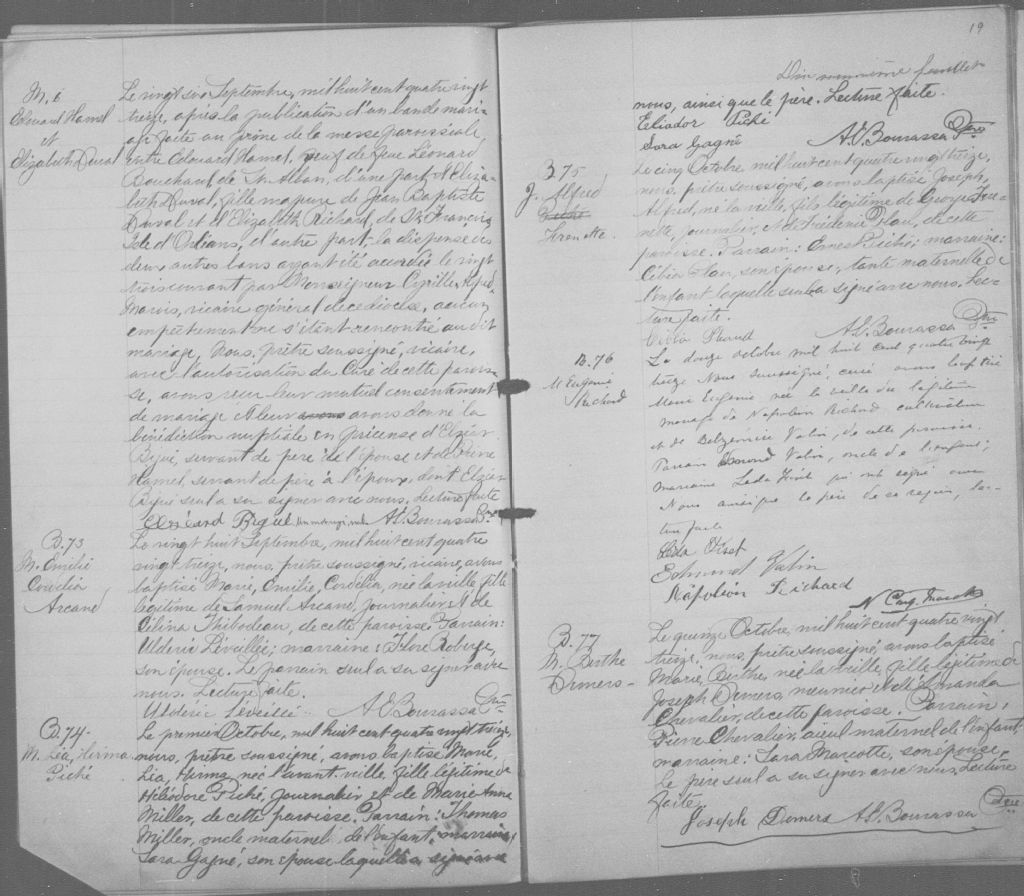 M. 6
Edouard Hamel
et
Elizabeth Duval
Le vingt six Septembre, mil huit cent quatre vingt
treize, après la publication d'un bande mari-
age faite au prône de la messe paroissiale
entre Edouard Hamel, veuf de feue Léonard
Bouchard de St. Alban, d'une part, et Eliza-
beth Duval, fille majeure de Jean Baptiste
Duval et d'Elizabeth Richard de St. François
Isle d'Orléans, d'autre part, la dispense des
deux autres bans ayant été accordée le vingt
trois courant par Monseigneur Cyrille Alfred
Marois, vicaire général de ce diocèse, aucun
empêchement ne s'étant rencontré au dit
mariage, Nous, prêtre soussigné, vicaire,
avec l'autorisation du Curé de cette parois-
se, avons reçu leur mutuel consentement
de mariage et leur avons avons donné la
bénédiction nuptiale en présence d'Elzéar
servant de père de l'épouse et de Pierre
Hamel, servant de père à l'époux, dont Elzéar
seul a su signer avec nous. Lecture faite
A. E. Bourassa Ptre
B. 73
M. Emilie
Cordélia
Arcand
Le vingt huit Septembre, mil huit cent quatre
vingt treize, nous, prêtre soussigné, vicaire, avons
baptisé Marie, Emilie, Cordélia, née la veille, fille
légitime de Samuel Arcand, journalier et de
Célina Thibodeau, de cette paroisse. Parrain:
Uldéric Léveillée; marraine: Flore Roberge,
son épouse. Le parrain seul a su signer avec
nous. Lecture faite.
Uldéric Léveillé A E Bourassa Ptre
B. 74.
M. Léa, Hirma
Piché
Le premier Octobre, mil huit cent quatre vingt treize,
nous, prêtre soussigné, avons baptisé Marie,
Léa, Hirma, née l'avant-veille, fille légitime de
Héliodore Piché, journalier et de Marie Anna
Miller, de cette paroisse. Parrain: Thomas
Miller, oncle maternel de l'enfant, marraine
Sara Gagné, son épouse laquelle a signé avec
19
Dix neuvième feuillet
nous, ainsi que le père. Lecture faite.
Eliador Piché
Sara Gagné A. E. Bourassa Ptre
B. 75
J. Alfred
Frenette.
Le cinq Octobre, mil huit cent quatre vingt treize,
nous, prêtre soussigné, avons baptisé Joseph,
Alfred, né la veille, fils légitime de George Fre-
nette, journalier, et de Frédérica de cette
paroisse. Parrain: Ernest Piché; marraine:
son épouse, tante maternelle de
l'enfant laquelle seule a signé avec nous. Lec-
ture faite.
A. E. Bourassa Ptre
B. 76
M Eugénie
Richard
Le douze octobre mil huit cent quatre vingt
treize Nous soussigné curé avons baptisé
Marie Eugénie née la veille du légitime
mariage de Napoléon Richard cultivateur
et de Valin, de cette paroisse.
Parrain Edmond Valin, oncle de l'enfant;
marraine Léda qui ont signé avec
Nous ainsi que le père de ce requis, lec-
ture faite
Léda
Edmond Valin
Napoléon Richard
B. 77
M. Berthe
Demers
Le quinze Octobre, mil huit cent quatre vingt
treize, nous, prêtre soussigné, avons baptisé
Marie, Berthe, née la veille, fille légitime de
Joseph Demers, meunier et d'Amanda
Chevalier, de cette paroisse. Parrain:
Pierre Chevalier, aïeul maternel de l'enfant,
marraine: Sara Marcotte, son épouse.
Le père seul a su signer avec nous. Lecture
faite.
Joseph Demers A. E. Bourassa Ptre